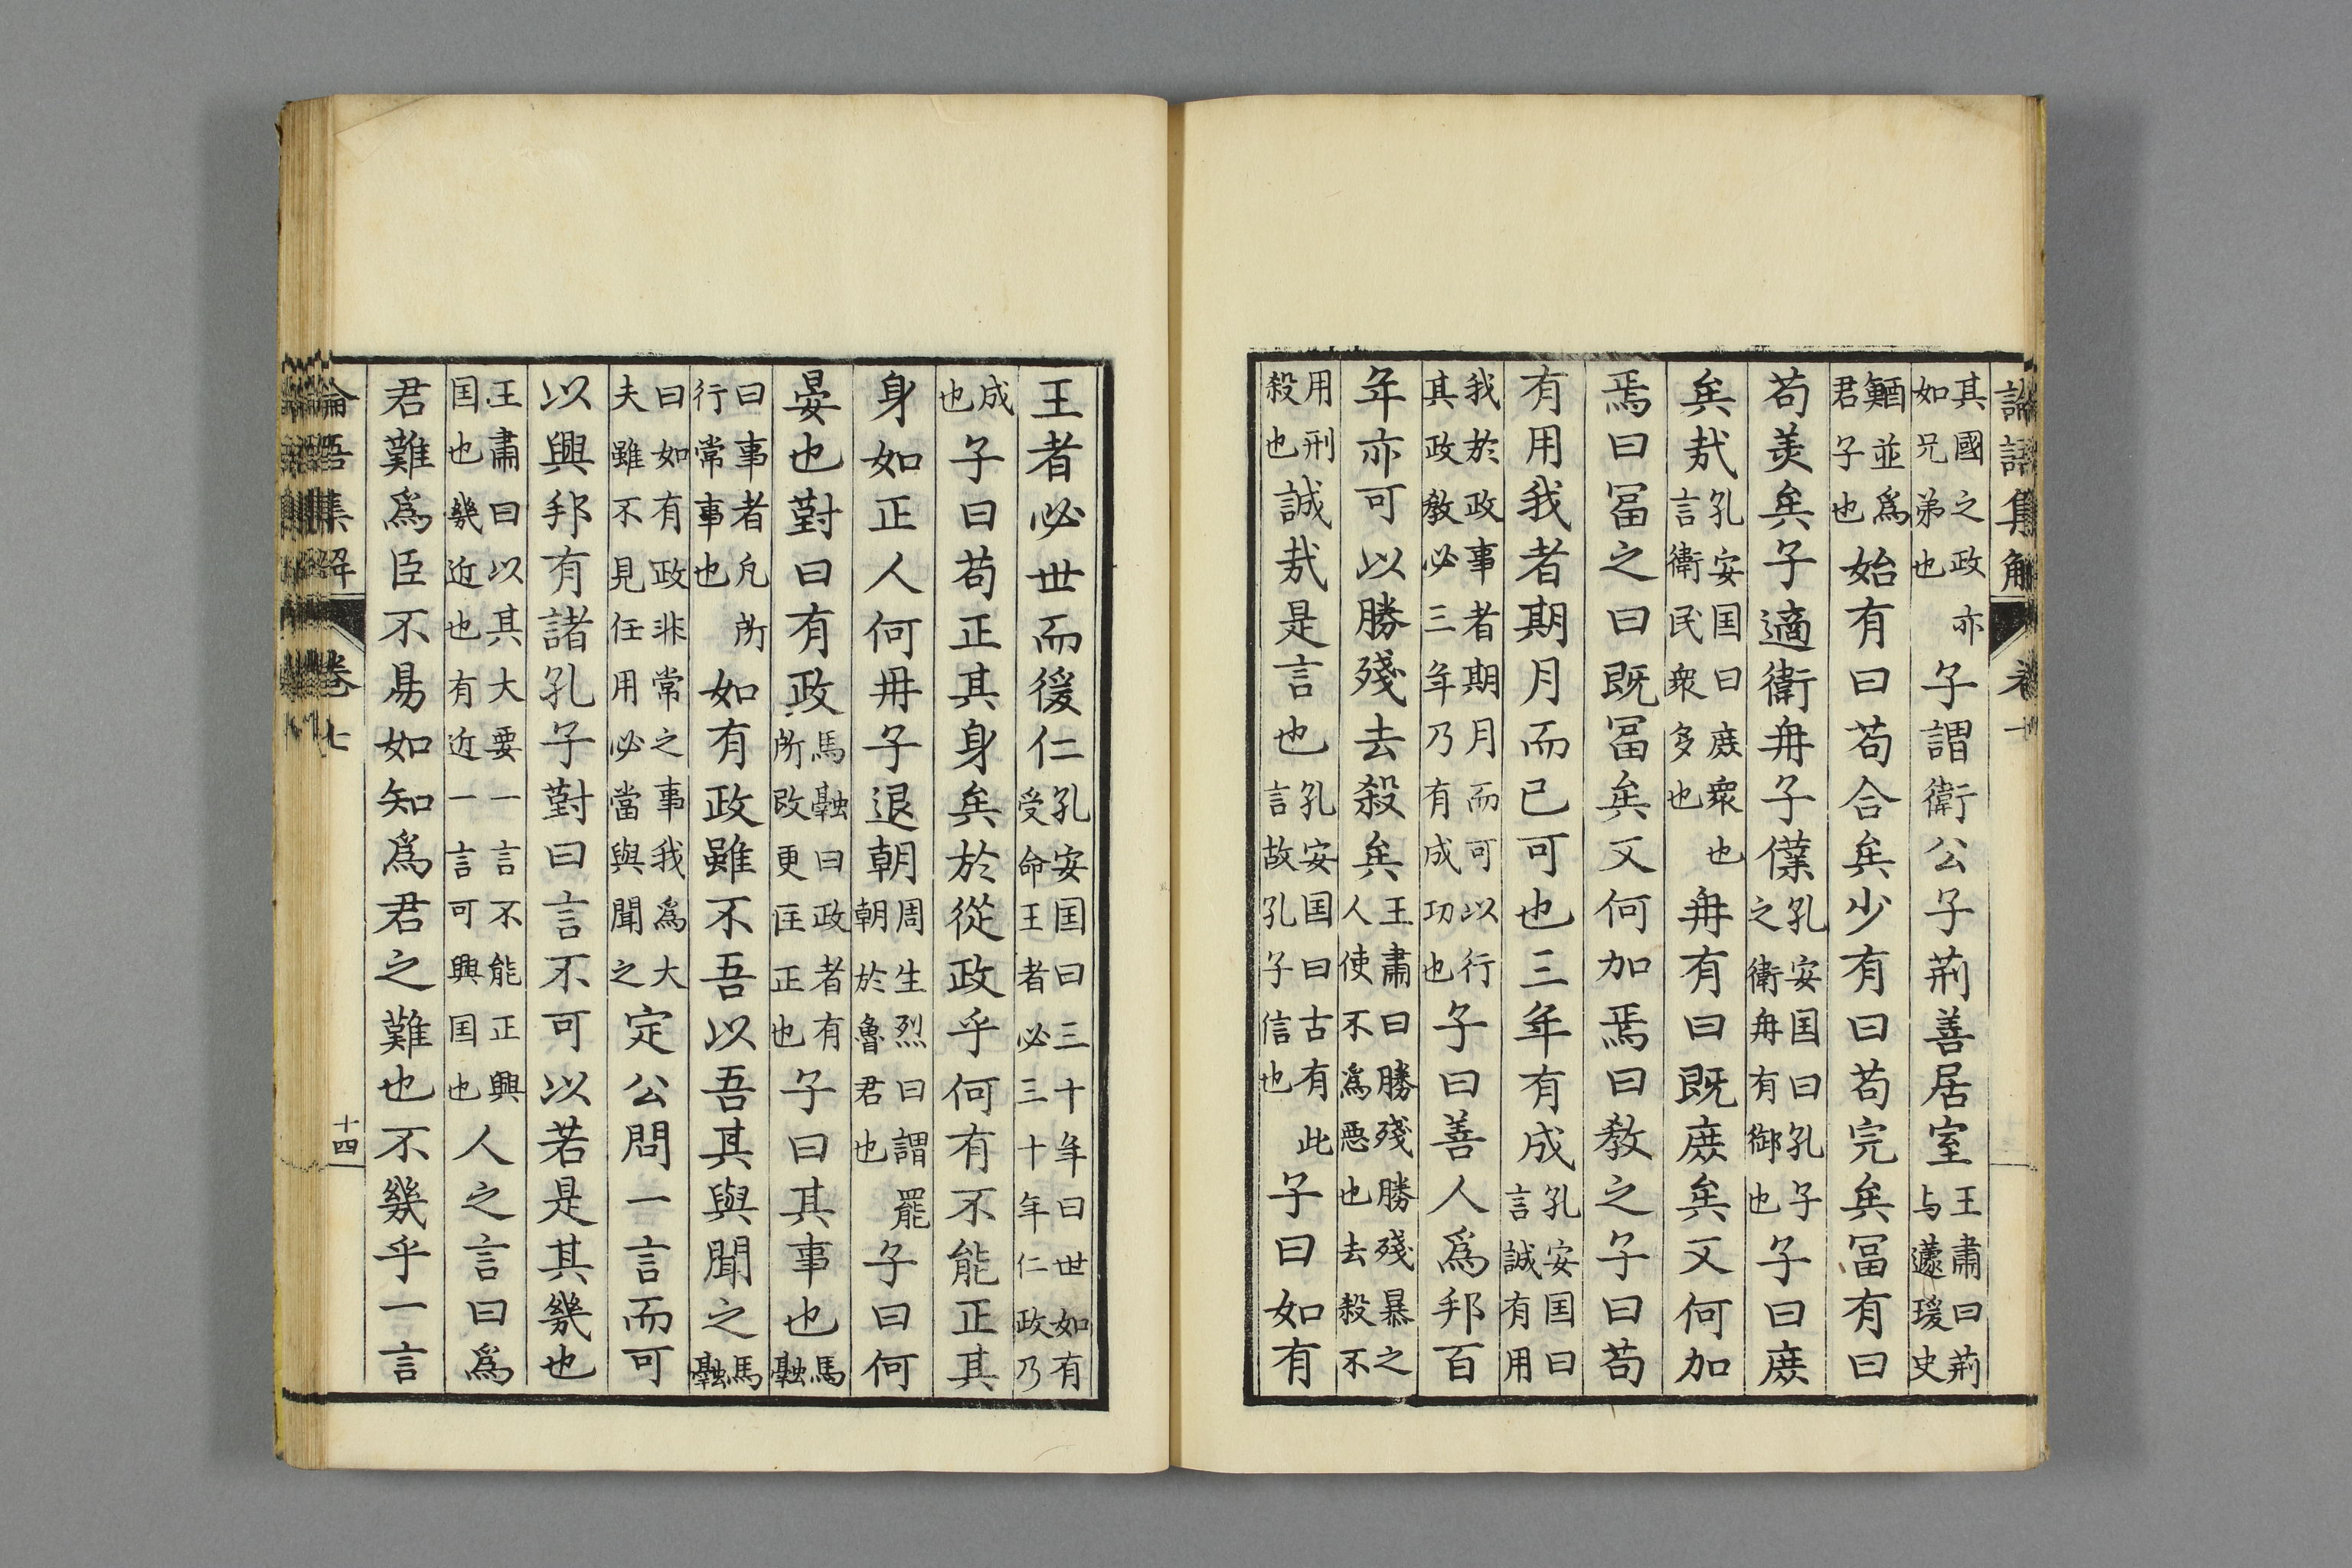 論語集解
其國之政亦如兄弟也子謂衛公子荊善居室王肅曰荊与蘧瑗史
鰌並爲君子也始有曰苟合矣少有曰苟完矣冨有曰
苟美矣子適衛冉子僕孔安囯曰孔子之衛冉有御也子曰庶
矣哉孔安囯曰庶衆也言衛民衆多也冉有曰既庶矣又何加
焉曰冨之曰既冨矣又何加焉曰教之子曰苟
有用我者期月而已可也三年有成孔安囯曰言誠有用
我於政事者期月而可以行其政教必三年乃有成功也子曰善人爲邦百
年亦可以勝殘去殺矣王肅曰勝殘勝殘暴之人使不爲惡也去殺不
用刑殺也誠哉是言也孔安囯曰古有此言故孔子信也子曰如有
王者必世而後仁孔安囯曰三十年曰世如有受命王者必三十年仁政乃
成也子曰苟正其身矣於從政乎何有不能正其
身如正人何冉子退朝周生烈曰謂罷朝於魯君也子曰何
晏也對曰有政馬融曰政者有所改更匡正也子曰其事也馬融
曰事者凡所行常事也如有政雖不吾以吾其與聞之馬融
曰如有政非常之事我爲大夫雖不見任用必當與聞之定公問一言而可
以興邦有諸孔子對曰言不可以若是其幾也
王肅曰以其大要一言不能正興囯也幾近也有近一言可興囯也人之言曰爲
君難爲臣不易如知爲君之難也不幾乎一言
論語集解 卷七 十四